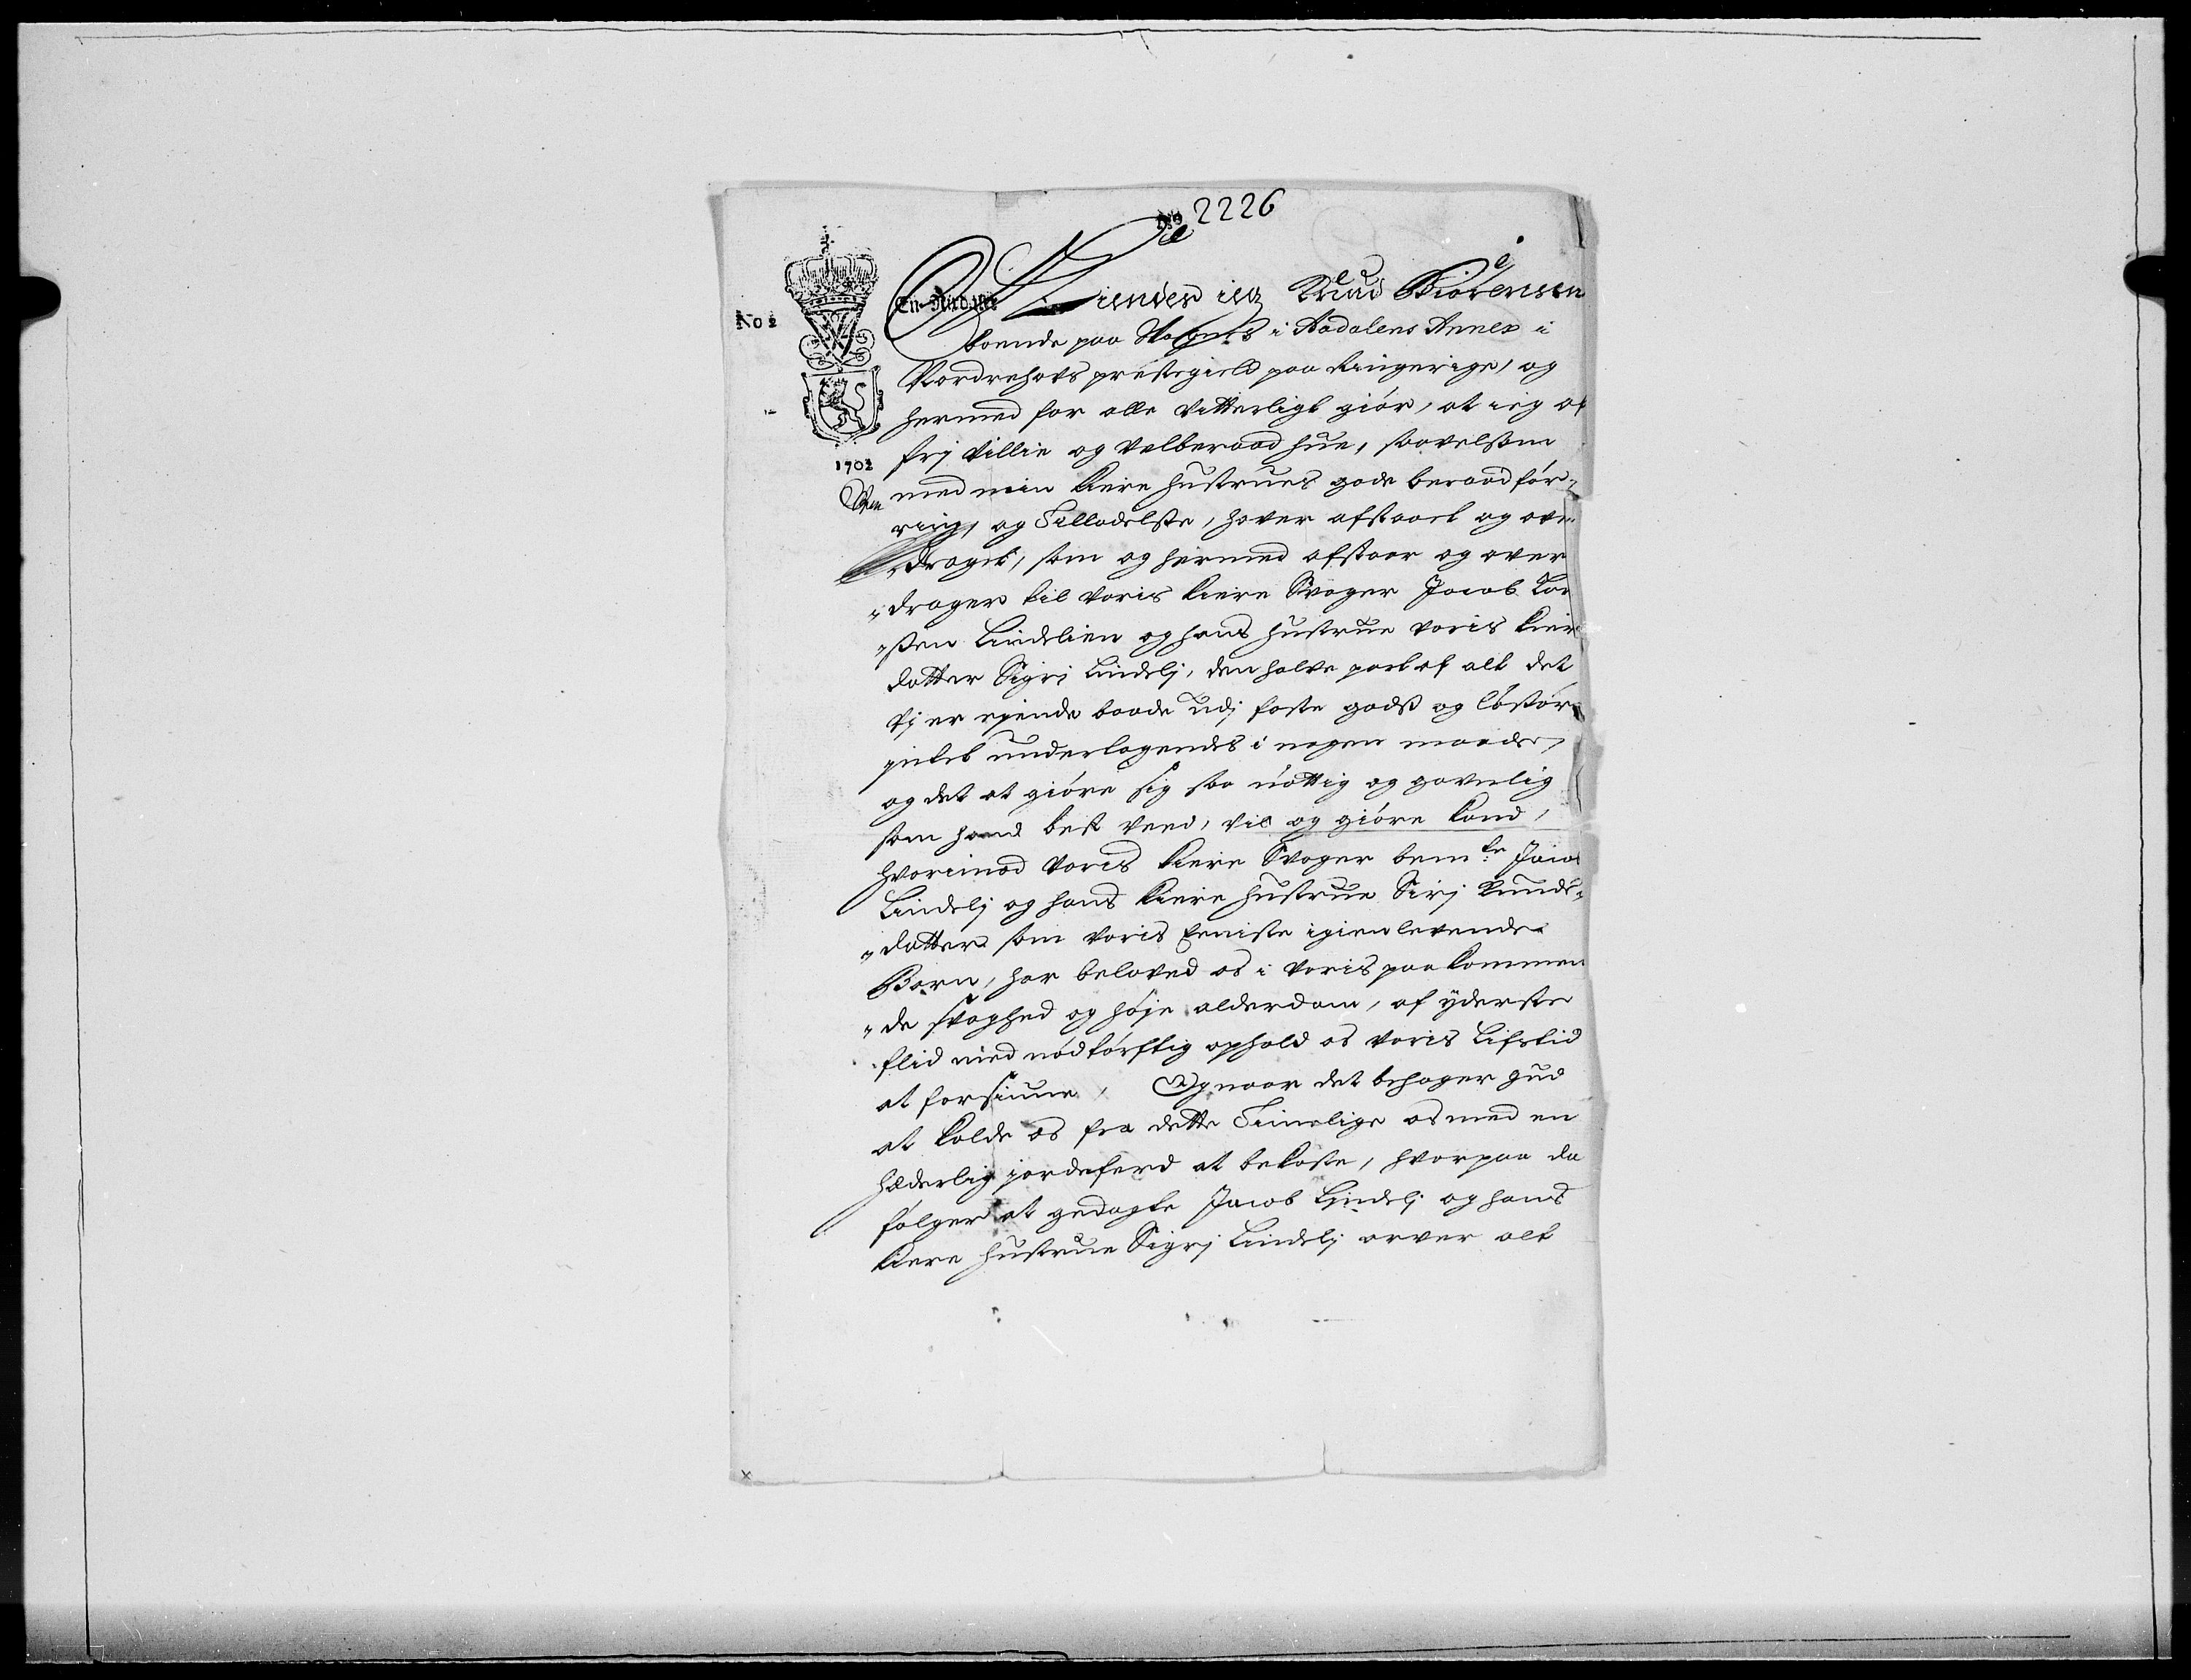 No 2226
En Rixd. Ort
No 2
1702
Kiendes ieg Knud Biörensen
boende paa i Aadalens Annex i
Nordrehovs prestegield paa Ringerige, og
hermed for alle Vitterligt giör, at ieg af
frj Villie og Velberaad hue, saavelsom
med min kiere hustrues gode beraadför„
ring, og Tilladelße, haver afstaaet og over
„draget, som og hermed afstaar og over
„drager til voris kiere Svoger Jacob
„ßen Lindelien og hans hustrue voris kiere
datter Sigri Lindelj, den halve part af alt det
vj er ejende baade Udj faste godß og lösöre
intet underlagendes i nogen maader,
og det at giöre sig saa nöttig og gavnlig
som hand best veed, vil og giöre kand,
hvorimod voris kiere Svoger bemte Jacob
Lindelj og hans kiere hustrue Sirj Knuds„
„datter som voris Eeniste igienlevende
Barn, har beloved os i voris paakommen
„de svaghed og höje alderdom, af yderste
flid med nödtörftig ophold os voris Lifstid
at forsiune, Og naar det behager gud
at kalde os fra dette Timelige os med en
hæderlig jordeferd at bekoste, hvorpaa da
fölger at gedagte Jacob Lindelj og hans
kiere hustrue Sigrj Lindelj arver alt